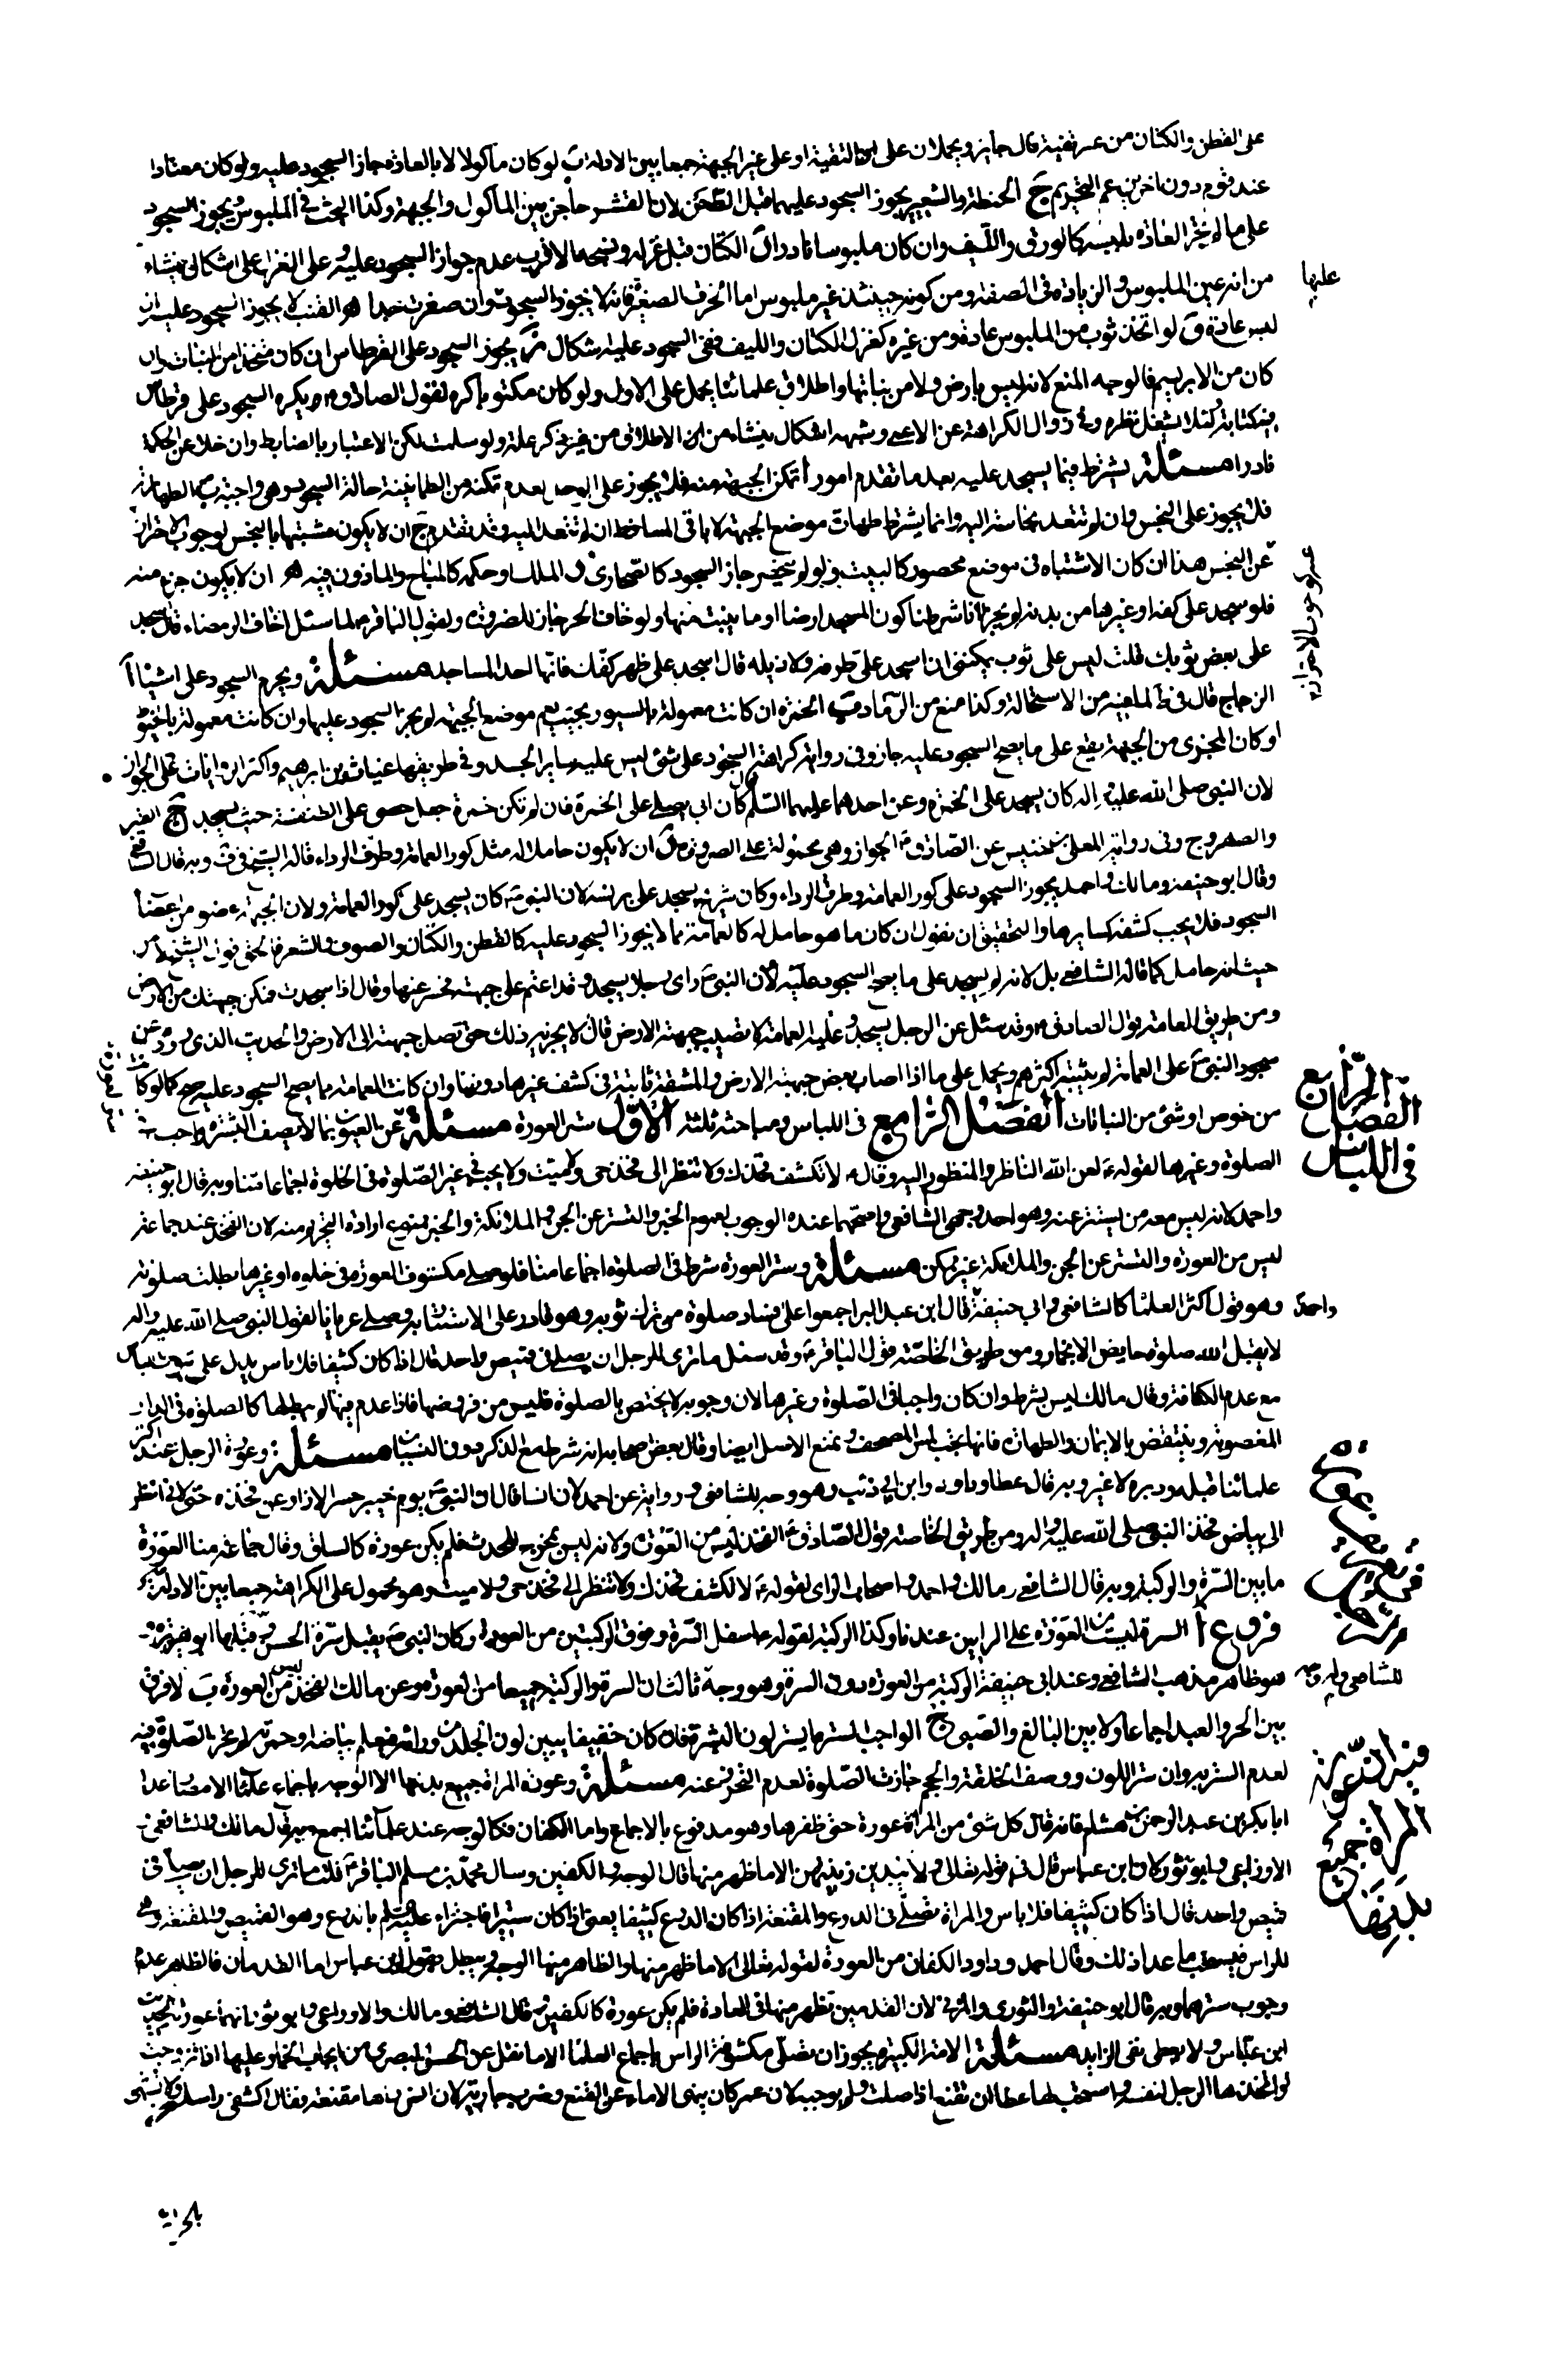 على القطن والكتان من غير تقية فقال جايز ويحملان على التقية او على غير الجبهة جمعا بين الادلة ب لو كان مأكولا لا بالعادة جاز السجود عليه ولو كان معتادا
عند قوم دون اخرين عم التحريم ج الحنطة والشعير يجوز السجود عليهما قبل الطحن لان القشر حاجز بين المأكول والجبهة وكذا البحث في الملبوس ويجوز السجود
على ما لم تجر العادة بلبسه كالورق والليف وان كان ملبوسا نادرا اما الكتان قبل غزله ونسجه فالاقرب عدم جواز السجود عليه وعلى الغزل على اشكال ينشاء
من انه عين الملبوس والزيادة في الصفة ومن كونه حينئذ غير ملبوس اما الخرق الصغيرة فانه لا يجوز السجود وان صغرت جدا هو القنب لا يجوز السجود عليه ان
عليها
لبس عادة و لو اتخذ ثوب من الملبوس عادة ومن غيره كغزل الكتان والليف ففي السجود عليه اشكال ز يجوز السجود على القرطاس ان كان متخذا من النبات وان
كان من الابريسم فالوجه المنع لانه ليس بارض ولا من نباتها واطلاق علمائنا يحمل على الاول ولو كان مكتوبا كره لقول الصادق يكره السجود على قرطاس
فيه كتابة ولئلا يشغل نظره وفي زوال الكراهة عن الاعمى وشبهه اشكال ينشاء من الاطلاق من غير ذكر علة ولو سلمت لكن الاعتبار بالضابط وان خلا عن الحكمة
نادرا مسئلة يشترط فيما يسجد عليه بعد ما تقدم امور ا تمكن الجبهة منه فلا يجوز على الوحل لعدم تمكنه من الطمانينة حالة السجود وهي واجبة ب الطهارة
فلا يجوز على النجس وان لم تتعد نجاسته اليه وانما يشترط طهارة موضع الجبهة لا باقي المساقط ان لم تتعد اليه وقد تقدم ج ان لا يكون مشتبها بالنجس لوجوب الاحتراز
عن النجس هذا ان كان الاشتباه في موضع محصور كالبيت ولو لم ينحصر جاز السجود كالصحاري د الملك او حكمه كالمباح والماذون فيه ه ان لا يكون جزء منه
فلو سجد على كفه او غيرها من بدنه لم يجز لانا شرطنا كون المسجد ارضا او ما ينبت منها ولو خاف الحر جاز للضرورة ولقول الباقر لما سئل اخاف الرمضاء قال اسجد
على بعض ثوبك قلت ليس على ثوب يمكنني ان اسجد على طرفه ولا ذيله قال اسجد على ظهر كفك فانها احد المساجد مسئلة ويحرم السجود على اشياء ا
الزجاج قال في ط لما فيه من الاستحالة وكذا منع من الرماد ب الخمرة ان كانت معمولة بالسيور بحيث يعم موضع الجبهة لم يجز السجود عليها وان كانت معمولة بالخيوط
او كان المجزي من الجبهة يقع على ما يصح السجود عليه جاز وفي رواية كراهة السجود على شئ ليس عليه ساير الجسد وفي طريقها غياث بن ابرهيم واكثر الروايات على الجواز
لان النبي صلى الله عليه واله كان يسجد على الخمرة وعن احدهما عليهما السلم قال كان ابي يصلي على الخمرة فان لم تكن خمرة جعل حصى على الطنفسة حيث يسجد ج القير
والصهروج وفي رواية المعلى بن خنيس عن الصادق الجواز وهي محمولة على الضرورة مسئلة ان لا يكون حاملا له مثل كور العمامة وطرف الرداء قاله الشيخ في ف وبه قال الشافعي
وقال ابو حنيفة ومالك واحمد يجوز السجود على كور العمامة وطرف الرداء وكان شريح يسجد على برنسه لان النبي كان يسجد على كور العمامة ولان الجبهة عضو من اعضاء
السجود فلا يجب كشفه كسايرها والتحقيق ان نقول ان كان ما هو حامل له كالعمامة مما لا يجوز السجود عليه كالقطن والكتان والصوف والشعر فالحق قول الشيخ لا من
حيث انه حامل كما قاله الشافعي بل لانه لم يسجد على ما يصح السجود عليه لان النبي راى رجلا يسجد وقد اعتم على جبهته فحسر عنها وقال اذا سجدت فمكن جبهتك من الارض
ومن طريق العامة قول الصادق وقد سئل عن الرجل يسجد وعليه العمامة لا تصيب جبهته الارض قال لا يجزيه ذلك حتى تصل جبهته الى الارض والحديث الذي رووه عن
سجود النبي على العمامة لم يثبته اكثرهم ويحمل على ما اذا اصاب بعض جبهته الارض والمشقة ثابتة في كشف غيرها دونها وان كانت العمامة مما يصح السجود عليه صح كما لو كانت
من خوص او شئ من النباتات الفصل الرابع في اللباس ومباحثه ثلثة الاول ستر العورة مسئلة عن العيون بما لا يصف البشرة واجب في
الفصل الرابع في اللباس
الصلوة وغيرها لقوله لعن الله الناظر والمنظور اليه وقال لا تكشف فخذك ولا تنظر الى فخذ حي ولا ميت ولا يجب في غير الصلوة في الخلوة اجماعا منا وبه قال ابو حنيفة
واحمد لانه ليس معه من يستتر عنه وهو احد وجهي الشافعي واصحهما عنده الوجوب لعموم الخبر والتستر عن الجن والملائكة والخبر نمنع ارادة التحريم منه لان الفخذ عند جماعة
ليس من العورة والتستر عن الجن والملائكة غير ممكن مسئلة وستر العورة شرط في الصلوة اجماعا منا فلو صلى مكشوف العورة في خلوه او غيرها بطلت صلوته
وهو قول اكثر العلماء كالشافعي وابي حنيفة قال ابن عبد البر اجمعوا على فساد صلوة من ترك ثوبه وهو قادر على الاستتار به وصلى عريانا لقول النبي صلى الله عليه واله
واحمد
لا يقبل الله صلوة حايض الا بخمار ومن طريق الخاصة قول الباقر وقد سئل ما ترى للرجل ان يصلي في قميص واحد قال اذا كان كثيفا فلا باس يدل على ثبوت الباس
مع عدم الكثافة وقال مالك ليس بشرط وان كان واجبا في الصلوة وغيرها لان وجوبه لا يختص بالصلوة فليس من فروضها فاذا عدم فيها لم يبطلها كالصلوة في الدار
المغصوبة وينتقض بالايمان والطهارة فانها تجب لمس المصحف ونمنع الاصل ايضا وقال بعض اصحابه انه شرط مع الذكر دون النسيان مسئلة وعورة الرجل عند اكثر
علمائنا قبله ودبره لا غير وبه قال عطا وداود وابن ابي ذئب وهو وجه للشافعي ورواية عن احمد لان انسا قال ان النبي يوم خيبر حسر الازار عن فخذه حتى لاني انظر
الى بياض فخذ النبي صلى الله عليه واله ومن طريق الخاصة قول الصادق الفخذ ليس من العورة ولانه ليس بمخرج للحدث فلم يكن عورة كالساق وقال جماعة منا العورة
ما بين السرة والركبة وبه قال الشافعي ومالك واحمد واصحاب الراي لقوله لا تكشف فخذك ولا تنظر الى فخذ حي ولا ميت وهو محمول على الكراهة جمعا بين الادلة
فروع ا السرة ليست من العورة على الرايين عندنا وكذا الركبة لقوله ما سفل السرة وفوق الركبتين من العورة وكان النبي يقبل سرة الحسن وقبلها ابو هريرة
هو ظاهر مذهب الشافعي وعند ابي حنيفة الركبة من العورة دون السرة وهو وجه للشافعي وله وجه ثالث ان السرة والركبة جميعا من العورة وعن مالك الفخذ ليس من العورة ب لا فرق
بين الحر والعبد اجماعا ولا بين البالغ والصبي ج الواجب الستر بما يستر لون البشرة فان كان خفيفا يبين لون الجلد من ورائه فيعلم بياضه وحمرته لم تجز الصلوة فيه
لعدم الستر به وان ستر اللون ووصف الخلقة والحجم جازت الصلوة لعدم التحرز عنه مسئلة وعورة المراة جميع بدنها الا الوجه باجماع علماء الامصار عدا
في ان عورة المراة جميع بدنها
ابا بكر بن عبد الرحمن بن هشام فانه قال كل شئ من المراة عورة حتى ظفرها وهو مدفوع بالاجماع واما الكفان فكالوجه عند علمائنا اجمع وبه قال مالك والشافعي
الاوزاعي وابو ثور لان ابن عباس قال في قوله تعالى ولا يبدين زينتهن الا ما ظهر منها قال الوجه والكفين وسال محمد بن مسلم الباقر قلت ما ترى للرجل ان يصلي في
قميص واحد قال اذا كان كثيفا فلا باس والمراة تصلي في الدرع والمقنعة اذا كان الدرع كثيفا يعني اذا كان ستيرا فاجتزاء عليه السلم بالدرع وهو القميص والمقنعة وهي
للراس فيستحب ما عدا ذلك وقال احمد وداود الكفان من العورة لقوله تعالى الا ما ظهر منها والظاهر منها الوجه ويبطل بقول ابن عباس اما القدمان فالظاهر عدم
وجوب سترهما وبه قال ابو حنيفة والثوري والمزني لان القدمين تظهر منها في العادة فلم يكن عورة كالكفين وقال الشافعي ومالك والاوزاعي وابو ثور انهما عورة لحديث
ابن عباس ولا يدل على نفي الزايد مسئلة الامة الكبيرة يجوز ان تصلي مكشوفة الراس باجماع العلماء الا ما نقل عن الحسن البصري من ايجاب الخمار عليها اذا تزوجت
او اتخذها الرجل لنفسه واستحب لها عطا ان تقنع اذا صلت ولم يوجبه لان عمر كان ينهى الاماء عن التقنع وضرب جارية لال انس راها مقنعة وقال اكشفي راسك ولا تشبهي
بالحراير